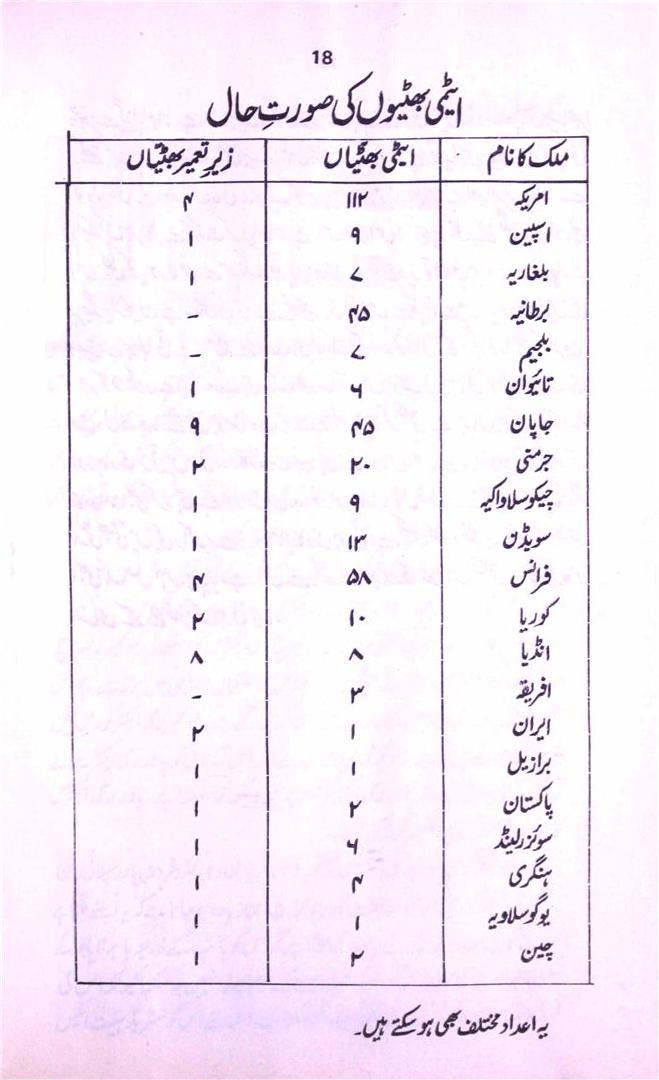 18
ایٹمی بھٹیوں کی صورتِ حال
ملک کا نام ایٹمی بھٹیاں زیرِ تعمیر بھٹیاں
امریکہ ۱۱۲ ۴
اسپین ۹ ۱
بلغاریہ ۷ ۱
برطانیہ ۴۵ -
بلجیم ۷ -
تائیوان ۶ ۱
جاپان ۴۵ ۹
جرمنی ۲۰ ۲
چیکوسلاواکیہ ۹ ۱
سویڈن ۱۳ ۱
فرانس ۵۸ ۴
کوریا ۱۰ ۲
انڈیا ۸ ۸
افریقہ ۳ -
ایران ۱ ۲
برازیل ۱ ۱
پاکستان ۲ ۱
سوئزرلینڈ ۶ ۱
ہنگری ۴ ۱
یوگوسلاویہ ۱ ۱
چین ۲ ۱
یہ اعداد مختلف بھی ہو سکتے ہیں۔